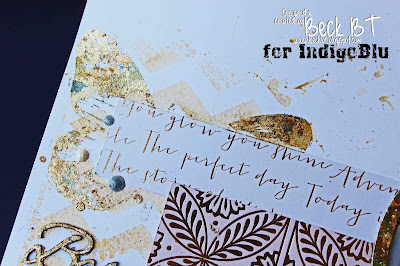 Beck BT
for IndigoBlu
You glow you shine Adven
The perfect day Today
The sto
Be